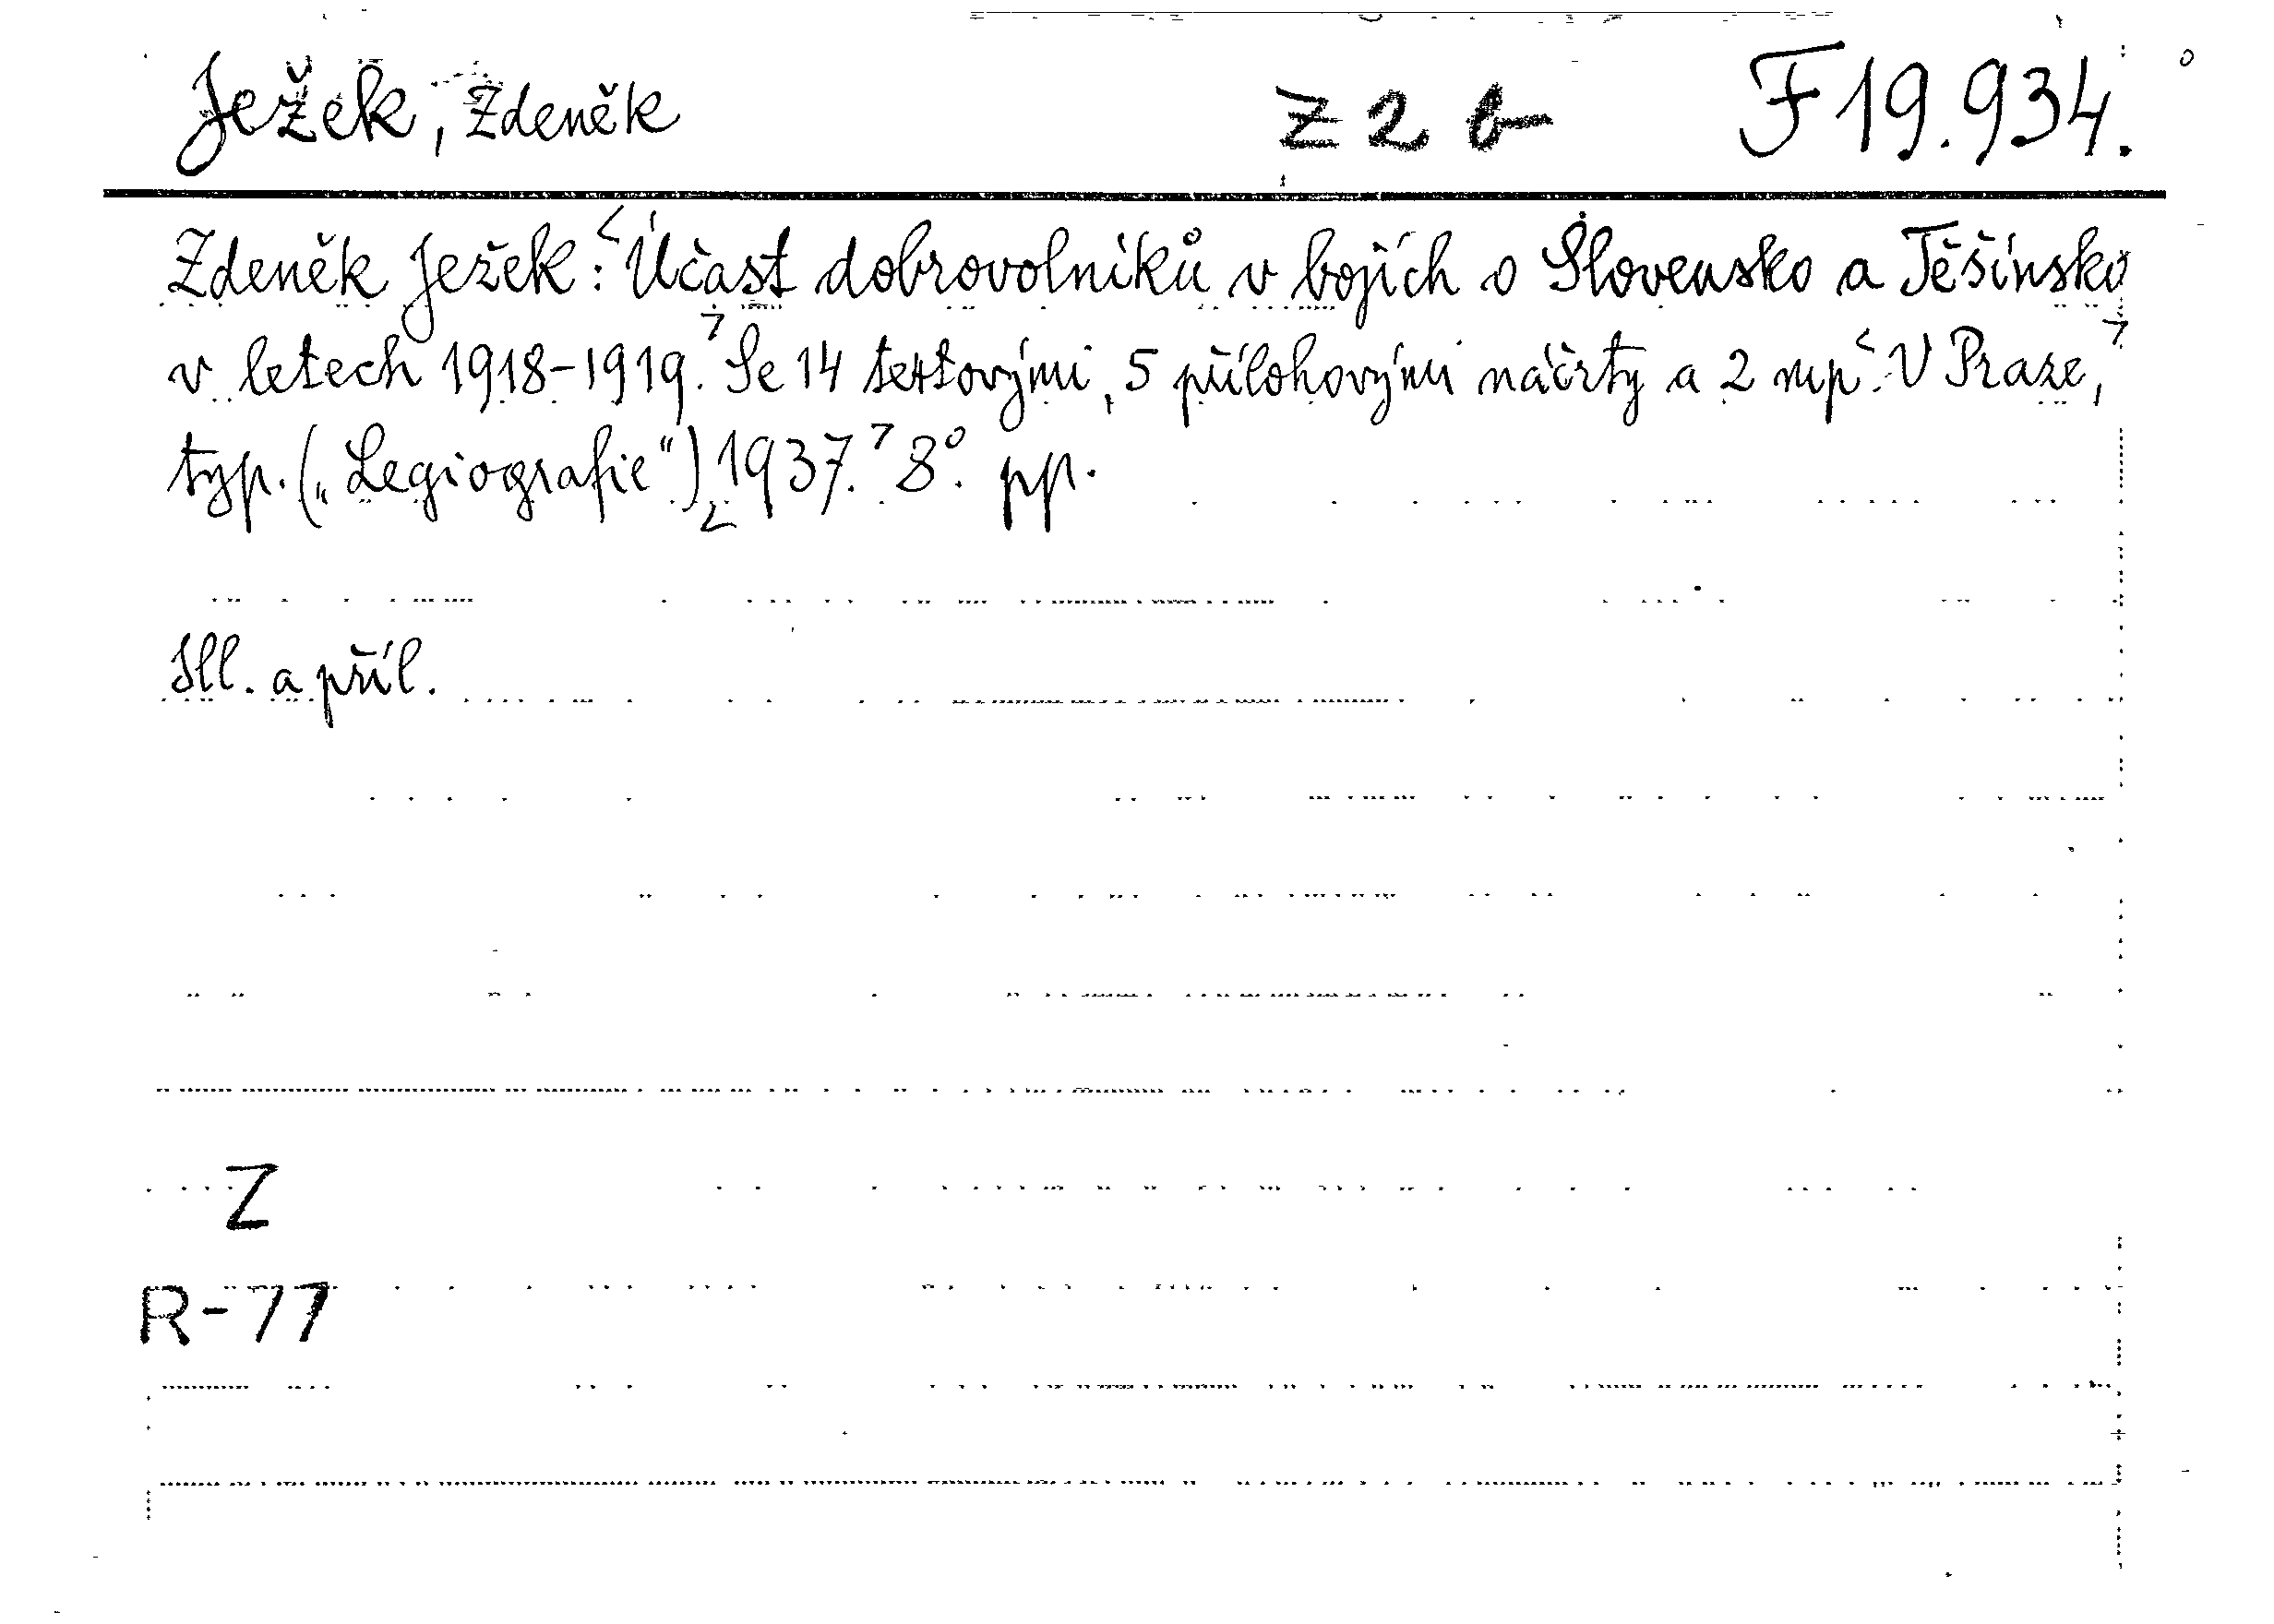 Ježek, Zdeněk Z 2 b F 19.934.
Zdeněk Ježek: Účast dobrovolníků v bojích o Slovensko a Těšínsko
v letech 1918-1919. Se 14 textovými, 5 přílohovými náčrty a 2 mp. V Praze,
typ. („Legiografie“) 1937. 8°. pp.
Ill. a příl.
Z
R-77